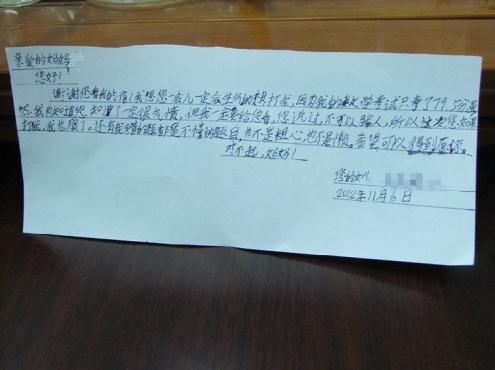 亲爱的妈妈
您好!
谢谢您看我的信!我想您一会儿一定会生气的想打我,因为我的数学考试只考了79
我也知道您知道了一定很气愤,但我一定要给您看,您说过,不可以骗人,所以
打我,我也认了,还有我错的题都是不懂的题目,也不是粗心,也不是懒。希望可以得到原谅。
对不起,妈妈!
您的女儿
2012年11月6日